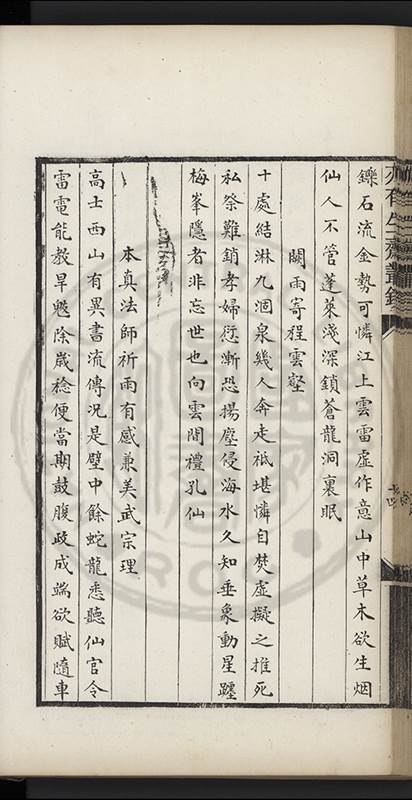 鑠石流金勢可憐江上雲雷虛作意山中草木欲生烟
仙人不管蓬萊淺深鎖蒼龍洞裏眠
闕雨寄程雲壑
十處結淋九涸泉幾人奔走祇堪憐自焚虛擬之推死
私祭難銷孝婦愆漸恐揚塵侵海水久知垂象動星躔
梅峯隱者非忘世也向雲間禮孔仙
本真法師祈雨有感兼美武宗理
高士西山有異書流傳況是壁中餘蛇龍悉聽仙官令
雷電能教旱魃除歲稔便當期鼓腹政成端欲賦隨車